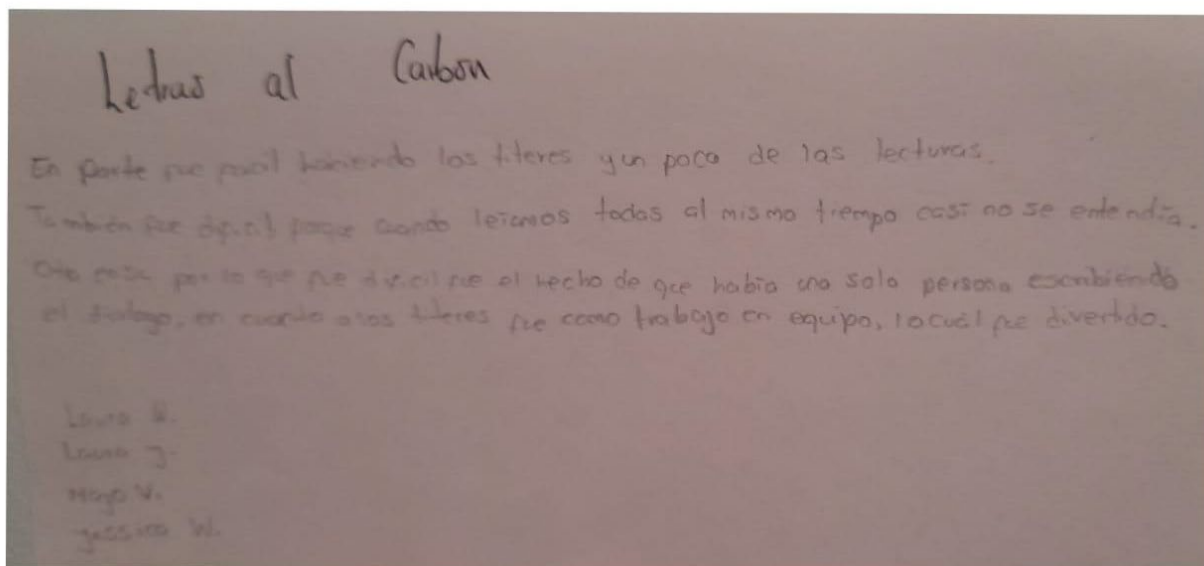 Letras al Carbón
En parte fue facil haciendo los titeres y un poco de las lecturas.
También fue dificil porque cuando leiamos todas al mismo tiempo casi no se entendia.
Otra cosa por lo que fue dificil fue el hecho de que habia una sola persona escribiendo
el dialogo, en cuanto a los titeres fue como trabajo en equipo, lo cuál fue divertido.
Laura
Laura J.
Majo V.
Jessica W.